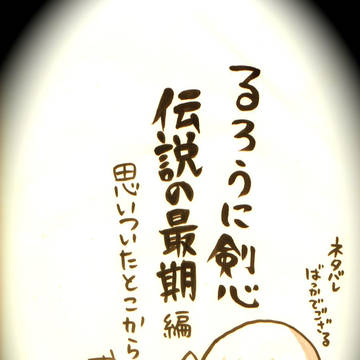 るろうに剣心
伝説の最期編
思いついたとこから
ネタバレ
ばっかでござる